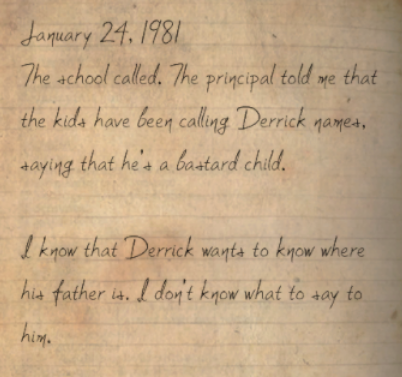 January 24, 1981
The school called. The principal told me that
the kids have been calling Derrick names,
saying that he's a bastard child.
I know that Derrick wants to know where
his father is. I don't know what to say to
him.